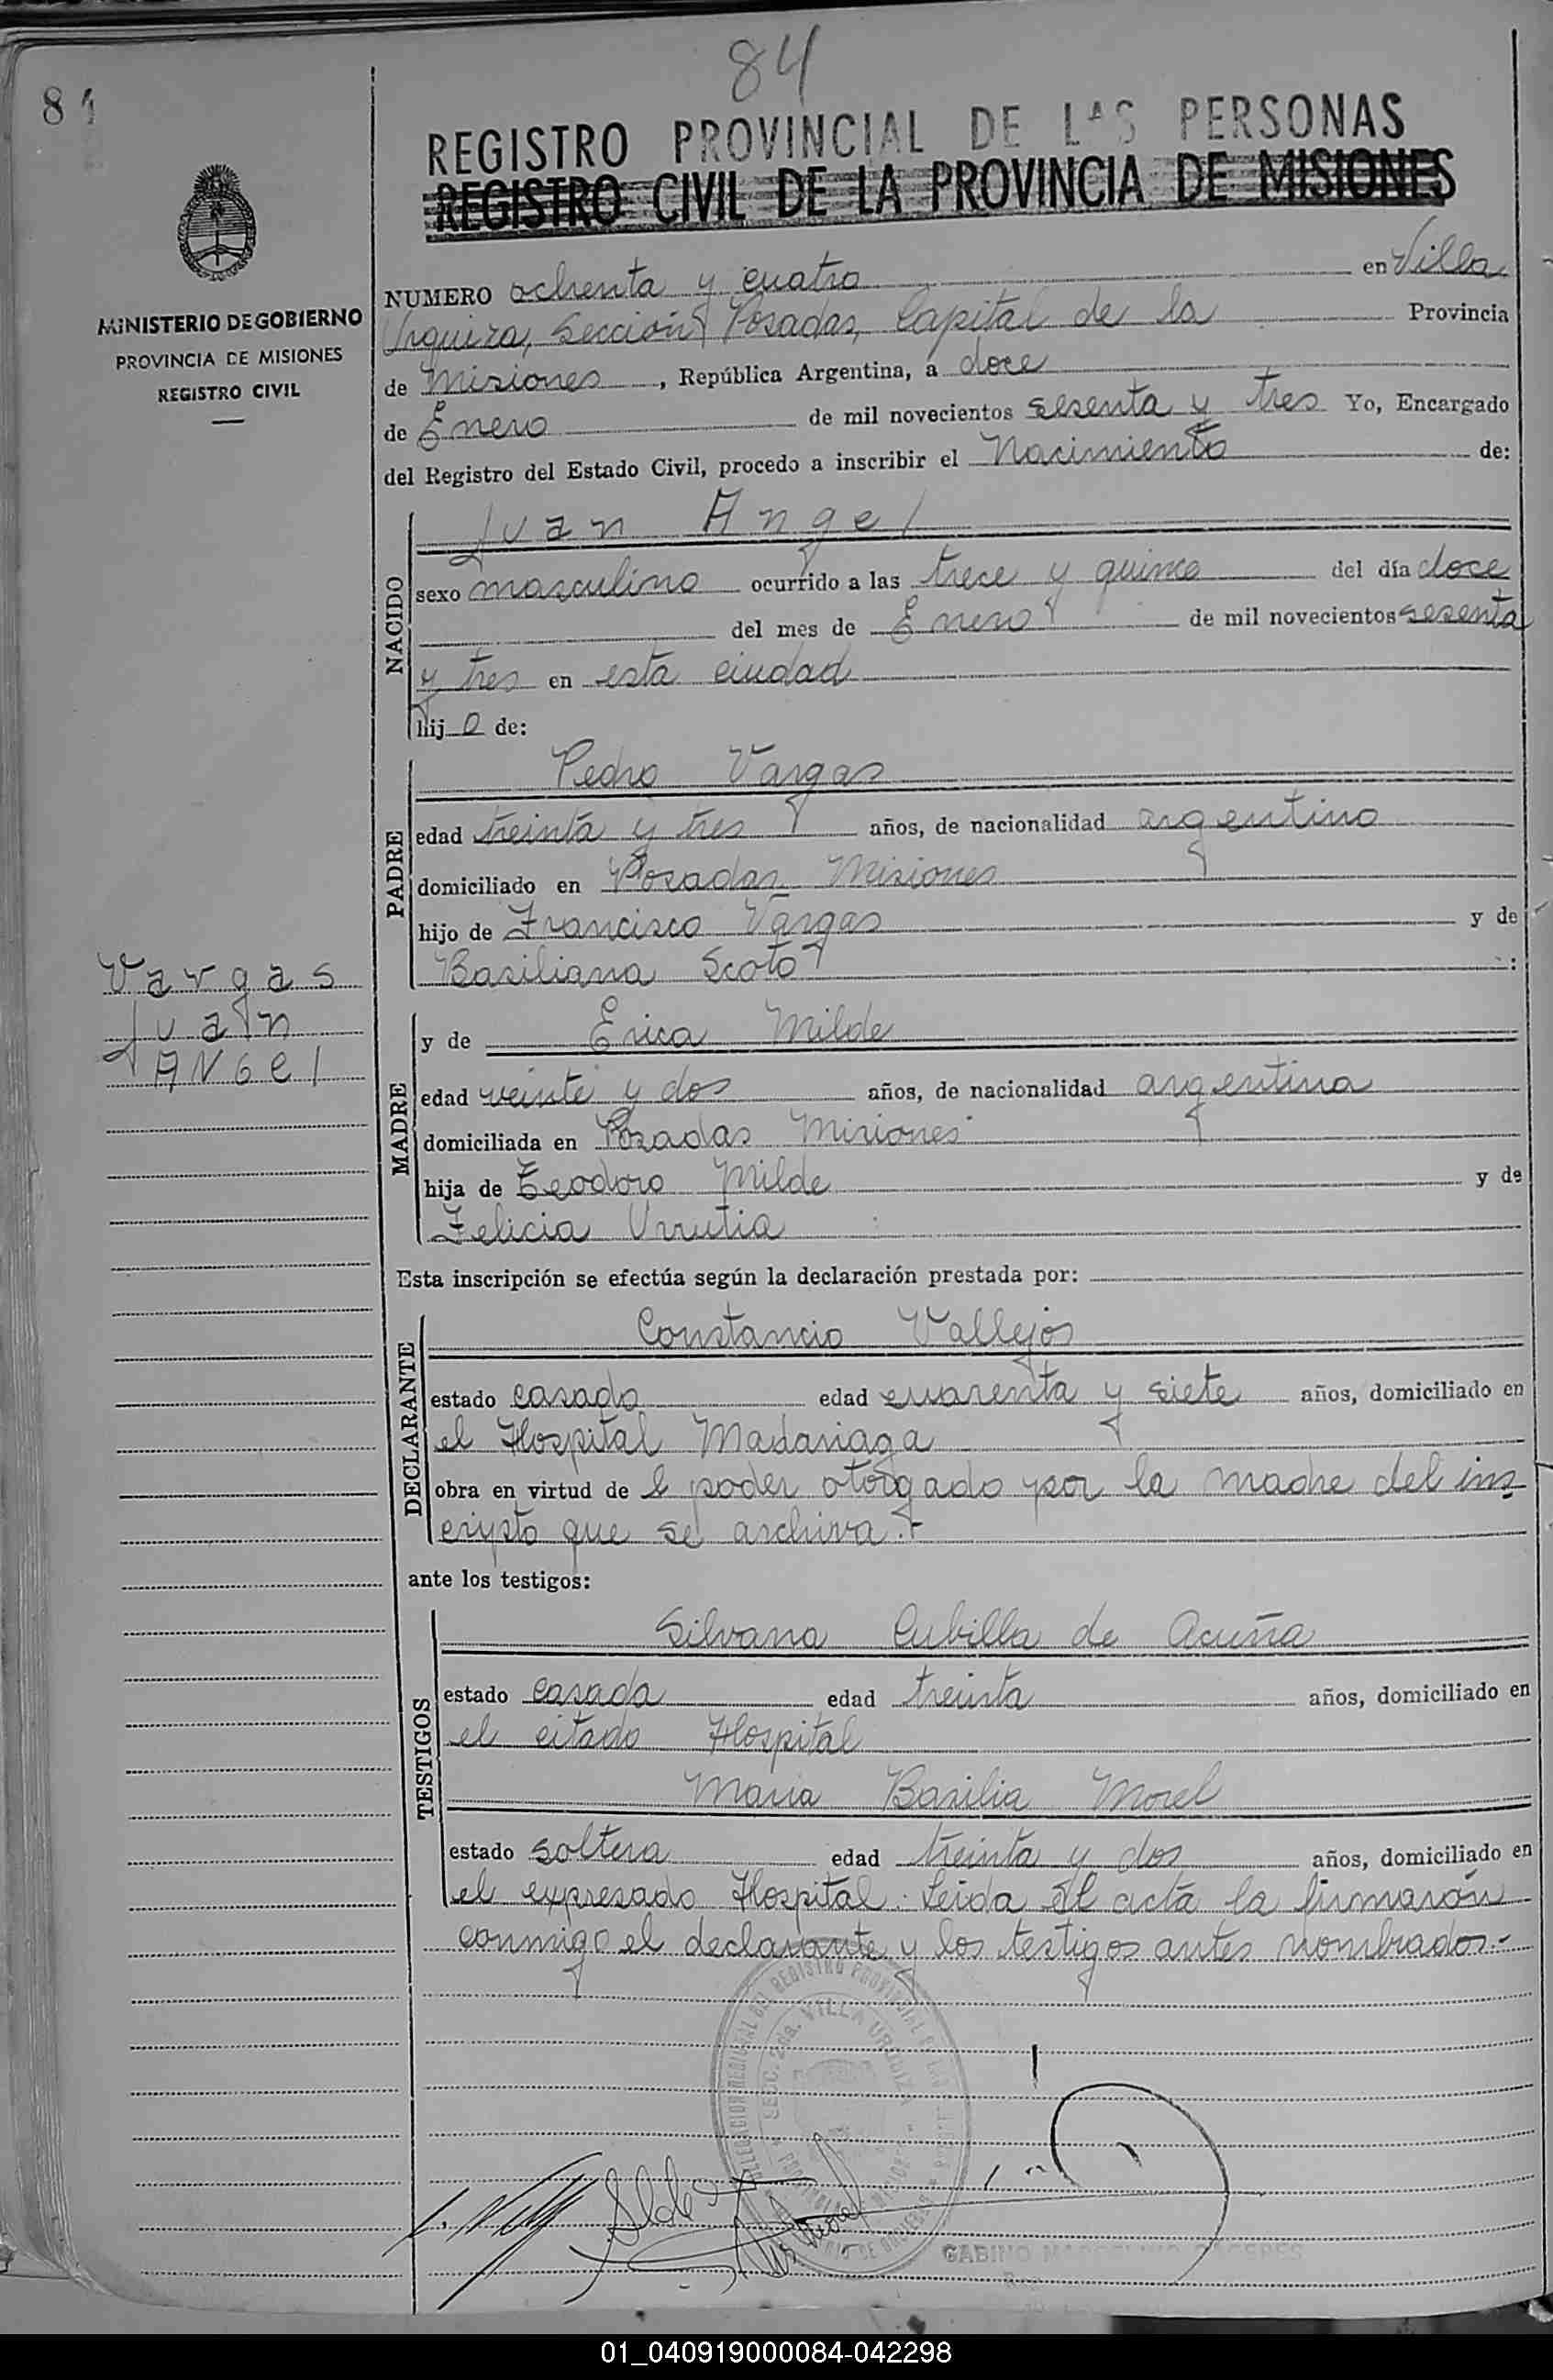 84
84
REGISTRO PROVINCIAL DE LAS PERSONAS
REGISTRO CIVIL DE LA PROVINCIA DE MISIONES
MINISTERIO DE GOBIERNO
PROVINCIA DE MISIONES
REGISTRO CIVIL
NUMERO ochenta y cuatro en Villa
Urquiza, Sección Posadas, Capital de la Provincia
de Misiones, República Argentina, a doce
de Enero de mil novecientos sesenta y tres Yo, Encargado
del Registro del Estado Civil, procedo a inscribir el Nacimiento de:
NACIDO
Juan Angel
sexo masculino ocurrido a las trece y quince del día doce
del mes de Enero de mil novecientos sesenta
y tres en esta ciudad
hijo de:
PADRE
Pedro Vargas
edad treinta y tres años, de nacionalidad argentino
domiciliado en Posadas Misiones
hijo de Francisco Vargas y de
Basiliana Scoto
Vargas
Juan
ANGel
MADRE
y de Erica Milde
edad veinte y dos años, de nacionalidad argentina
domiciliada en Posadas Misiones
hija de Teodoro Milde y de
Felicia Urrutia
Esta inscripción se efectúa según la declaración prestada por:
DECLARANTE
Constancio Vallejos
estado casado edad cuarenta y siete años, domiciliado en
el Hospital Madariaga
obra en virtud de l poder otorgado por la madre del ins
cripto que se archiva.
ante los testigos:
TESTIGOS
Silvana Cubilla de Acuña
estado casada edad treinta años, domiciliado en
el citado Hospital
Maria Basilia Morel
estado soltera edad treinta y dos años, domiciliado en
el expresado Hospital. Leida el acta la firmarón
conmigo el declarante y los testigos antes nombrados.-
SECC. 2da. VILLA URQUIZA
GABINO
01_040919000084-042298